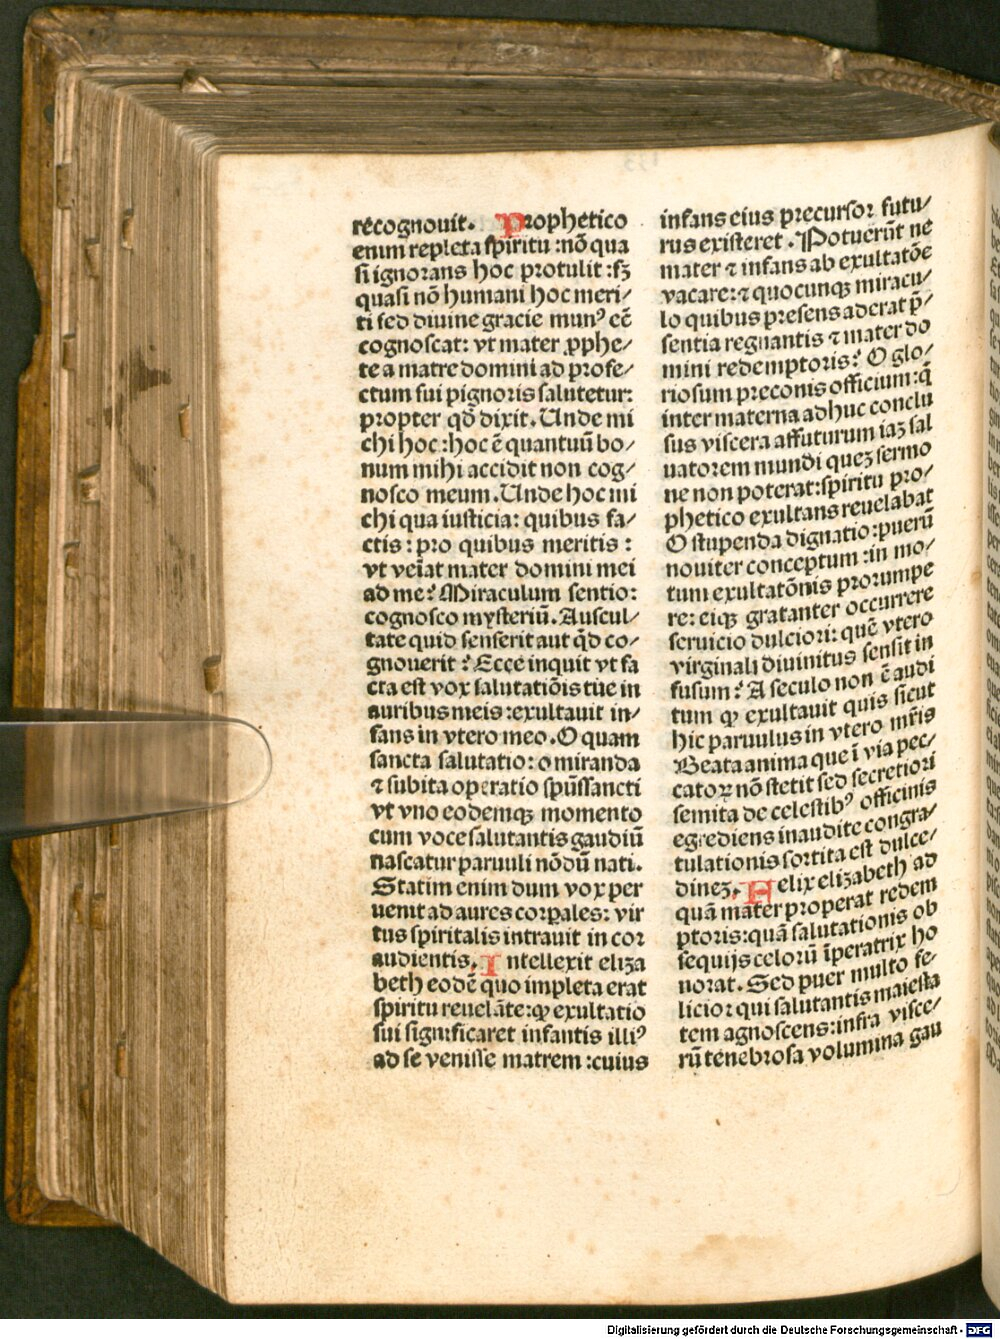 recognouit. Prophetico
enim repleta spiritu :nō qua
si ignorans hoc protulit :sꝫ
quasi nō humani hoc meri/
ti sed diuine gracie munꝰ eē
cognoscat: vt mater ꝓphe/
te a matre domini ad profe/
ctum sui pignoris salutetur:
propter qđ dixit. Unde mi
chi hoc :hoc ē quantuū bo/
num mihi accidit non cog/
nosco meum. Unde hoc mi
chi qua iusticia: quibus fa/
ctis : pro quibus meritis :
vt veīat mater domini mei
ad me? Miraculum sentio:
cognosco mysteriū. Auscul/
tate quid senserit aut qđ co/
gnouerit ? Ecce inquit vt fa
cta est vox salutatiōis tue in
auribus meis :exultauit in/
fans in vtero meo. O quam
sancta salutatio: o miranda
⁊ subita operatio spūssancti
vt vno eodemqꝫ momento
cum voce salutantis gaudiū
nascatur paruuli nōdū nati.
Statim enim dum vox per
uenit ad aures corpales: vir
tus spiritalis intrauit in cor
audientis. Intellexit eliza
beth eodē quo impleta erat
spiritu reuelāte:ꝙ exultatio
sui significaret infantis illiꝰ
ad se venisse matrem :cuius
infans eius precursor futu/
rus existeret . Potuerūt ne
mater ⁊ infans ab exultatōe
vacare: ⁊ quocunqꝫ miracu/
lo quibus presens aderat p̄/
sentia regnantis ⁊ mater do
mini redemptoris? O glo/
riosum preconis officium :q̄
inter materna adhuc conclu
sus viscera affuturum iaꝫ sal
uatorem mundi queꝫ sermo
ne non poterat:spiritu pro/
phetico exultans reuelabat
O stupenda dignatio :puerū
nouiter conceptum :in mo/
tum exultatōnis prorumpe
re: eiqꝫ gratanter occurrere
seruicio dulciori: quē vtero
virginali diuinitus sensit in
fusum? A seculo non ē audi
tum ꝙ exultauit quis sicut
hic paruulus in vtero mr̄is
Beata anima que ī via pec/
catoꝝ nō stetit sed secretiori
semita de celestibꝰ officinis
egrediens inaudite congra/
tulationis sortita est dulce/
dineꝫ. Felix elizabeth ad
quā mater properat redem
ptoris:quā salutationis ob
sequijs celorū īperatrix ho
norat. Sed puer multo fe/
licior qui salutantis maiesta
tem agnoscens:infra visce/
rū tenebrosa volumina gau
Digitalisierung gefördert durch die Deutsche Forschungsgemeinschaft - DFG